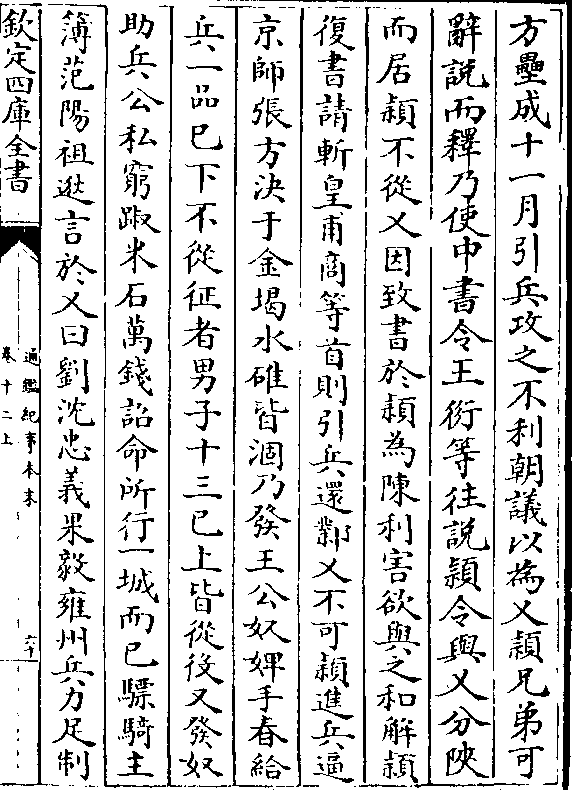 方壘成十一月引兵攻之不利朝議以為乂穎兄弟可
辭說而釋乃使中書令王衍等往說穎令與乂分陜
而居穎不從乂因致書於穎為陳利害欲與之和解穎
復書請斬皇甫商等首則引兵還鄴乂不可穎進兵逼
京師張方決于金堨水碓皆涸乃發王公奴婢手舂給
兵一品已下不從征者男子十三已上皆從役又發奴
助兵公私窮踧米石萬錢詔命所行一城而已驃騎主
簿范陽祖逖言於乂曰劉沈忠義果毅雍州兵力足制
欽定四庫全書
通鑑紀事本末
卷十二上
六十